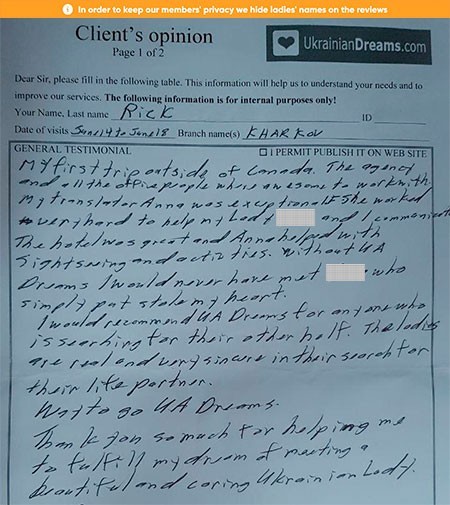 In order to keep our members' privacy we hide ladies' names on the reviews
Client's opinion
Page 1 of 2
UkrainianDreams.com
Dear Sir, please fill in the following table. This information will help us to understand your needs and to
improve our services. The following information is for internal purposes only!
Your Name, Last name Rick ID
Date of visits June 14 to June 18 Branch name(s) KHARKOV
GENERAL TESTIMONIAL I PERMIT PUBLISH IT ON WEB SITE
My first trip outside of Canada. The agency
and all the office people where awesome to work with
My translator Anna was exceptional. She worked
very hard to help my Lady and I communicate
The hotel was great and Anna helped with
Sightseeing and activities. Without UA
Dreams I would never have met who
simply put stole my heart.
I would recommend UA Dreams for anyone who
is searching for their other half. The ladies
are real and very sincere in their search for
their life partner.
Way to go UA Dreams.
Thank you so much for helping me
to fulfill my dream of meeting a
beautiful and caring Ukrainian Lady.